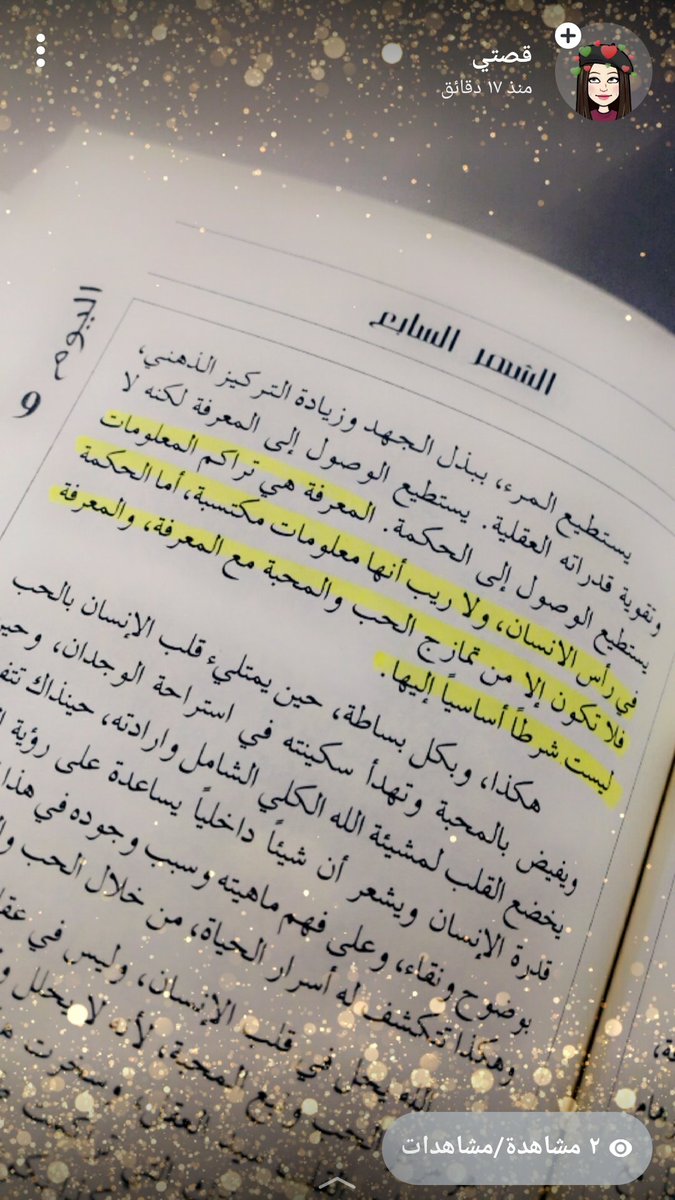 قصتي
منذ ١٧ دقائق
الشهر السابع
اليوم
9
يستطيع المرء، ببذل الجهد وزيادة التركيز الذهني،
وتقوية قدراته العقلية. يستطيع الوصول إلى المعرفة لكنه لا
يستطيع الوصول إلى الحكمة. المعرفة هي تراكم المعلومات
في رأس الانسان، ولا ريب أنها معلومات مكتسبة، أما الحكمة
فلا تكون إلا من تمازج الحب والمحبة مع المعرفة، والمعرفة
ليست شرطاً أساسياً إليها.
هكذا، وبكل بساطة، حين يمتليء قلب الإنسان بالحب
ويفيض بالمحبة وتهدأ سكينته في استراحة الوجدان،
يخضع القلب لمشيئة الله الكلي الشامل وارادته، حينذاك
قدرة الإنسان ويشعر أن شيئاً داخلياً يساعدة على رؤية
بوضوح ونقاء، وعلى فهم ماهيته وسبب وجوده في هذا
وهكذا تتكشف له أسرار الحياة، من خلال الحب
الله يحل في قلب الإنسان، وليس في
الحب وانبع المحبة، لأنه لا يحلل
العقل، وسخرت
٢ مشاهدة/مشاهدات